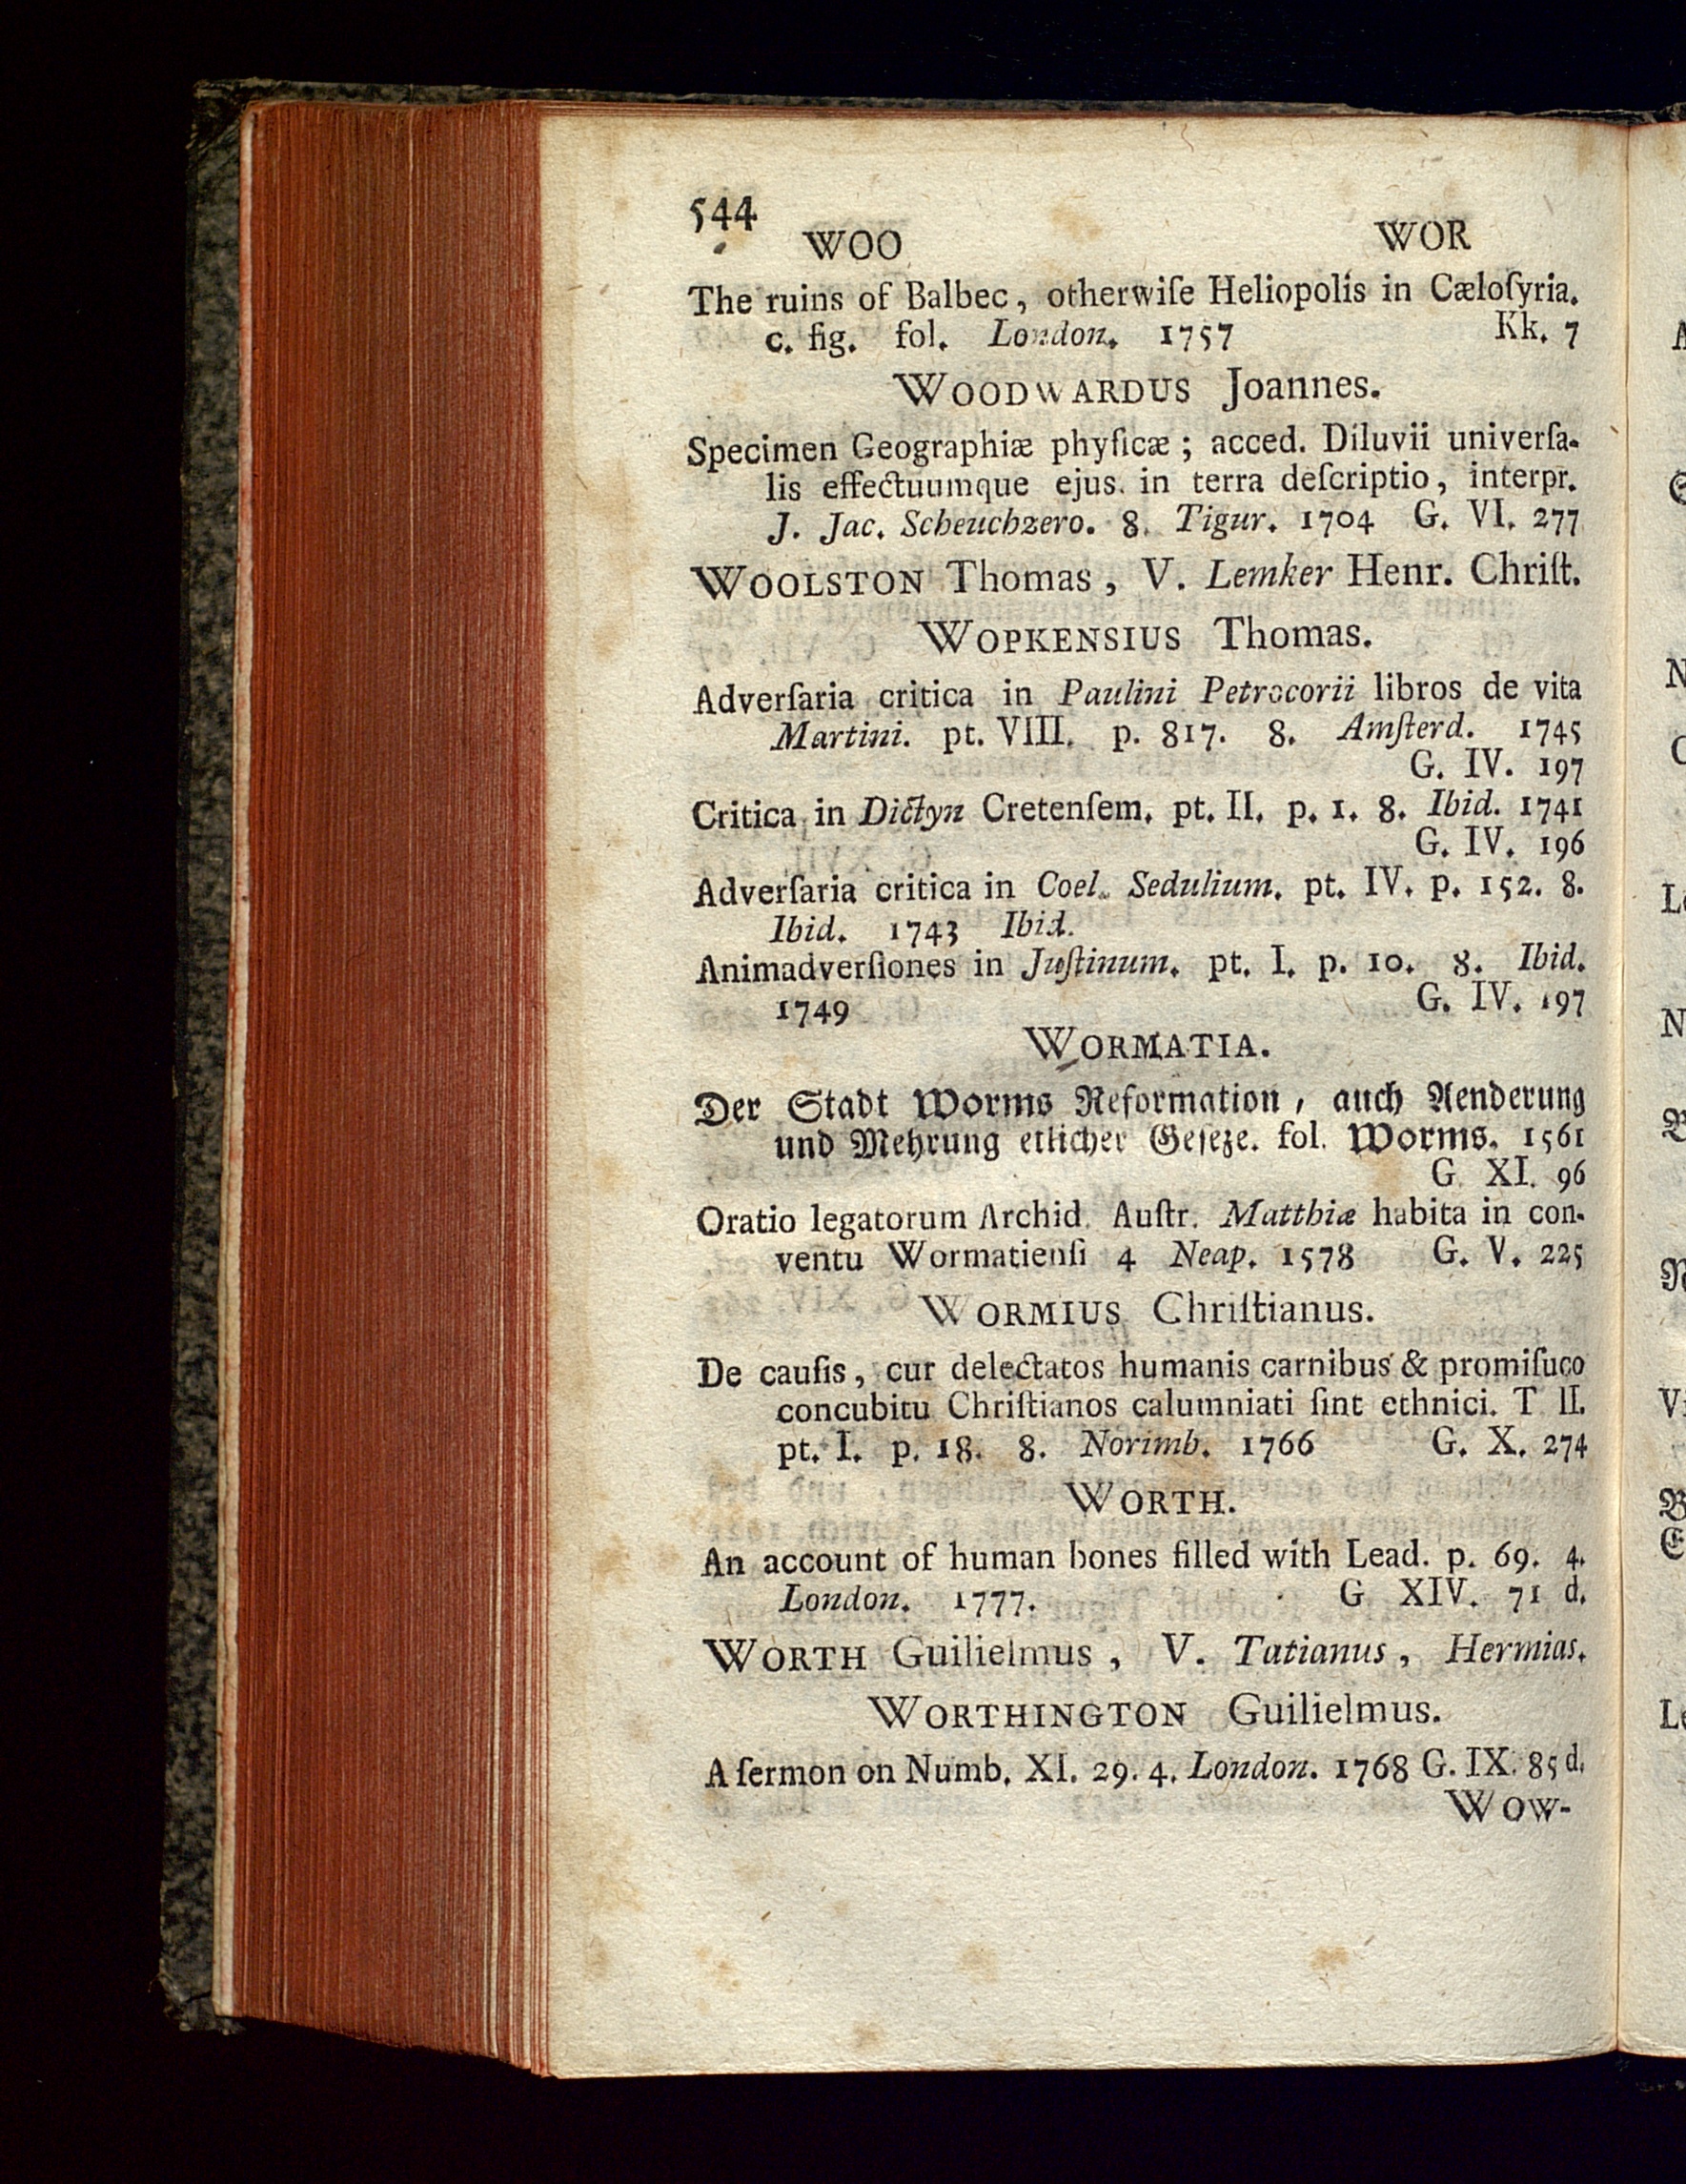 544
WOO WOR
The ruins of Balbec, otherwiſe Heliopolis in Cæloſyria.
c. fig. fol. London. 1757 Kk. 7
WOODWARDUS Joannes.
Specimen Geographiæ phyſicæ; acced. Diluvii univerſa-
lis effectuumque ejus. in terra deſcriptio, interpr.
J. Jac. Scheuchzero. 8. Tigur. 1704 G. VI. 277
WOOLSTON Thomas, V. Lemker Henr. Chriſt.
WOPKENSIUS Thomas.
Adverſaria critica in Paulini Petrocorii libros de vita
Martini. pt. VIII. p. 817. 8. Amſterd. 1745
G. IV. 197
Critica in Dictyn Cretenſem. pt. II. p. 1. 8. Ibid. 1741
G. IV. 196
Adverſaria critica in Coel. Sedulium. pt. IV. p. 152. 8.
Ibid. 1743 Ibid.
Animadverſiones in Juſtinum. pt. I. p. 10. 8. Ibid.
1749 G. IV. 197
WORMATIA.
Der Stadt Worms Reformation, auch Aenderung
und Mehrung etlicher Geſeze. fol. Worms. 1561
G XI. 96
Oratio legatorum Archid. Auſtr. Matthiæ habita in con-
ventu Wormatienſi 4 Neap. 1578 G. V. 225
WORMIUS Chriſtianus.
De cauſis, cur delectatos humanis carnibus & promiſuco
concubitu Chriſtianos calumniati ſint ethnici. T II.
pt. I. p. 18. 8. Norimb. 1766 G. X. 274
WORTH.
An account of human bones filled with Lead. p. 69. 4.
London. 1777. G XIV. 71 d.
WORTH Guilielmus, V. Tatianus, Hermias.
WORTHINGTON Guilielmus.
A ſermon on Numb. XI. 29. 4. London. 1768 G. IX. 85 d.
WOW-